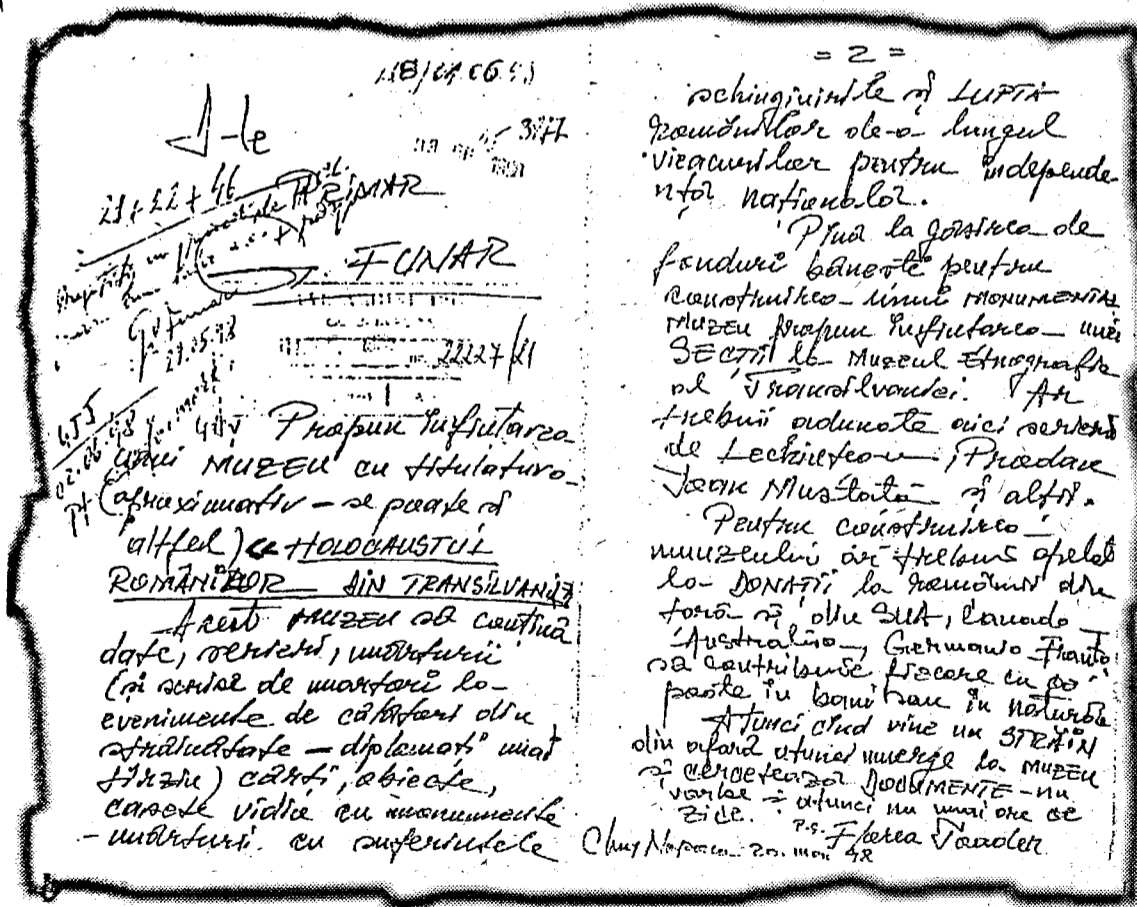 D-le
21+22+46
PRIMAR
FUNAR
22227/21
Propun înființarea
unui MUZEU cu titulatura
(aproximativ – se poate și
altfel) « HOLOCAUSTUL
ROMÂNILOR DIN TRANSILVANIA
Acest MUZEU să conțină
date, scrieri, mărturii
(și scrise de martori la
evenimente de călători din
străinătate – diplomați mai
tîrziu) cărți, obiecte,
casete vidio cu monumente
– mărturii cu suferințele
= 2 =
schingiuirile și LUPTA
românilor de-a lungul
vieacurilor pentru independe-
nța națională.
Pînă la găsirea de
fonduri bănești pentru
construirea unui MONUMENTAL
MUZEU propun înființarea unei
SECȚII la Muzeul Etnografic
al Transilvaniei. Ar
trebui adunate aici scrieri
de Lechințean, Prodan
Ioan Mustață și alții.
Pentru construirea
muuzeului ar trebui apelat
la DONAȚII la românii din
țară și din SUA, Canada
Australia, Germania Franța
să contribuie fiecare cu ce
poate în bani sau în natură
Atunci cînd vine un STRĂIN
din afară atunci merge la MUZEU
și cercetează DOCUMENTE – nu
vorbe – atunci nu mai are ce
zice.
P.s. Florea Toader
Cluj Napoca 20. mai 98